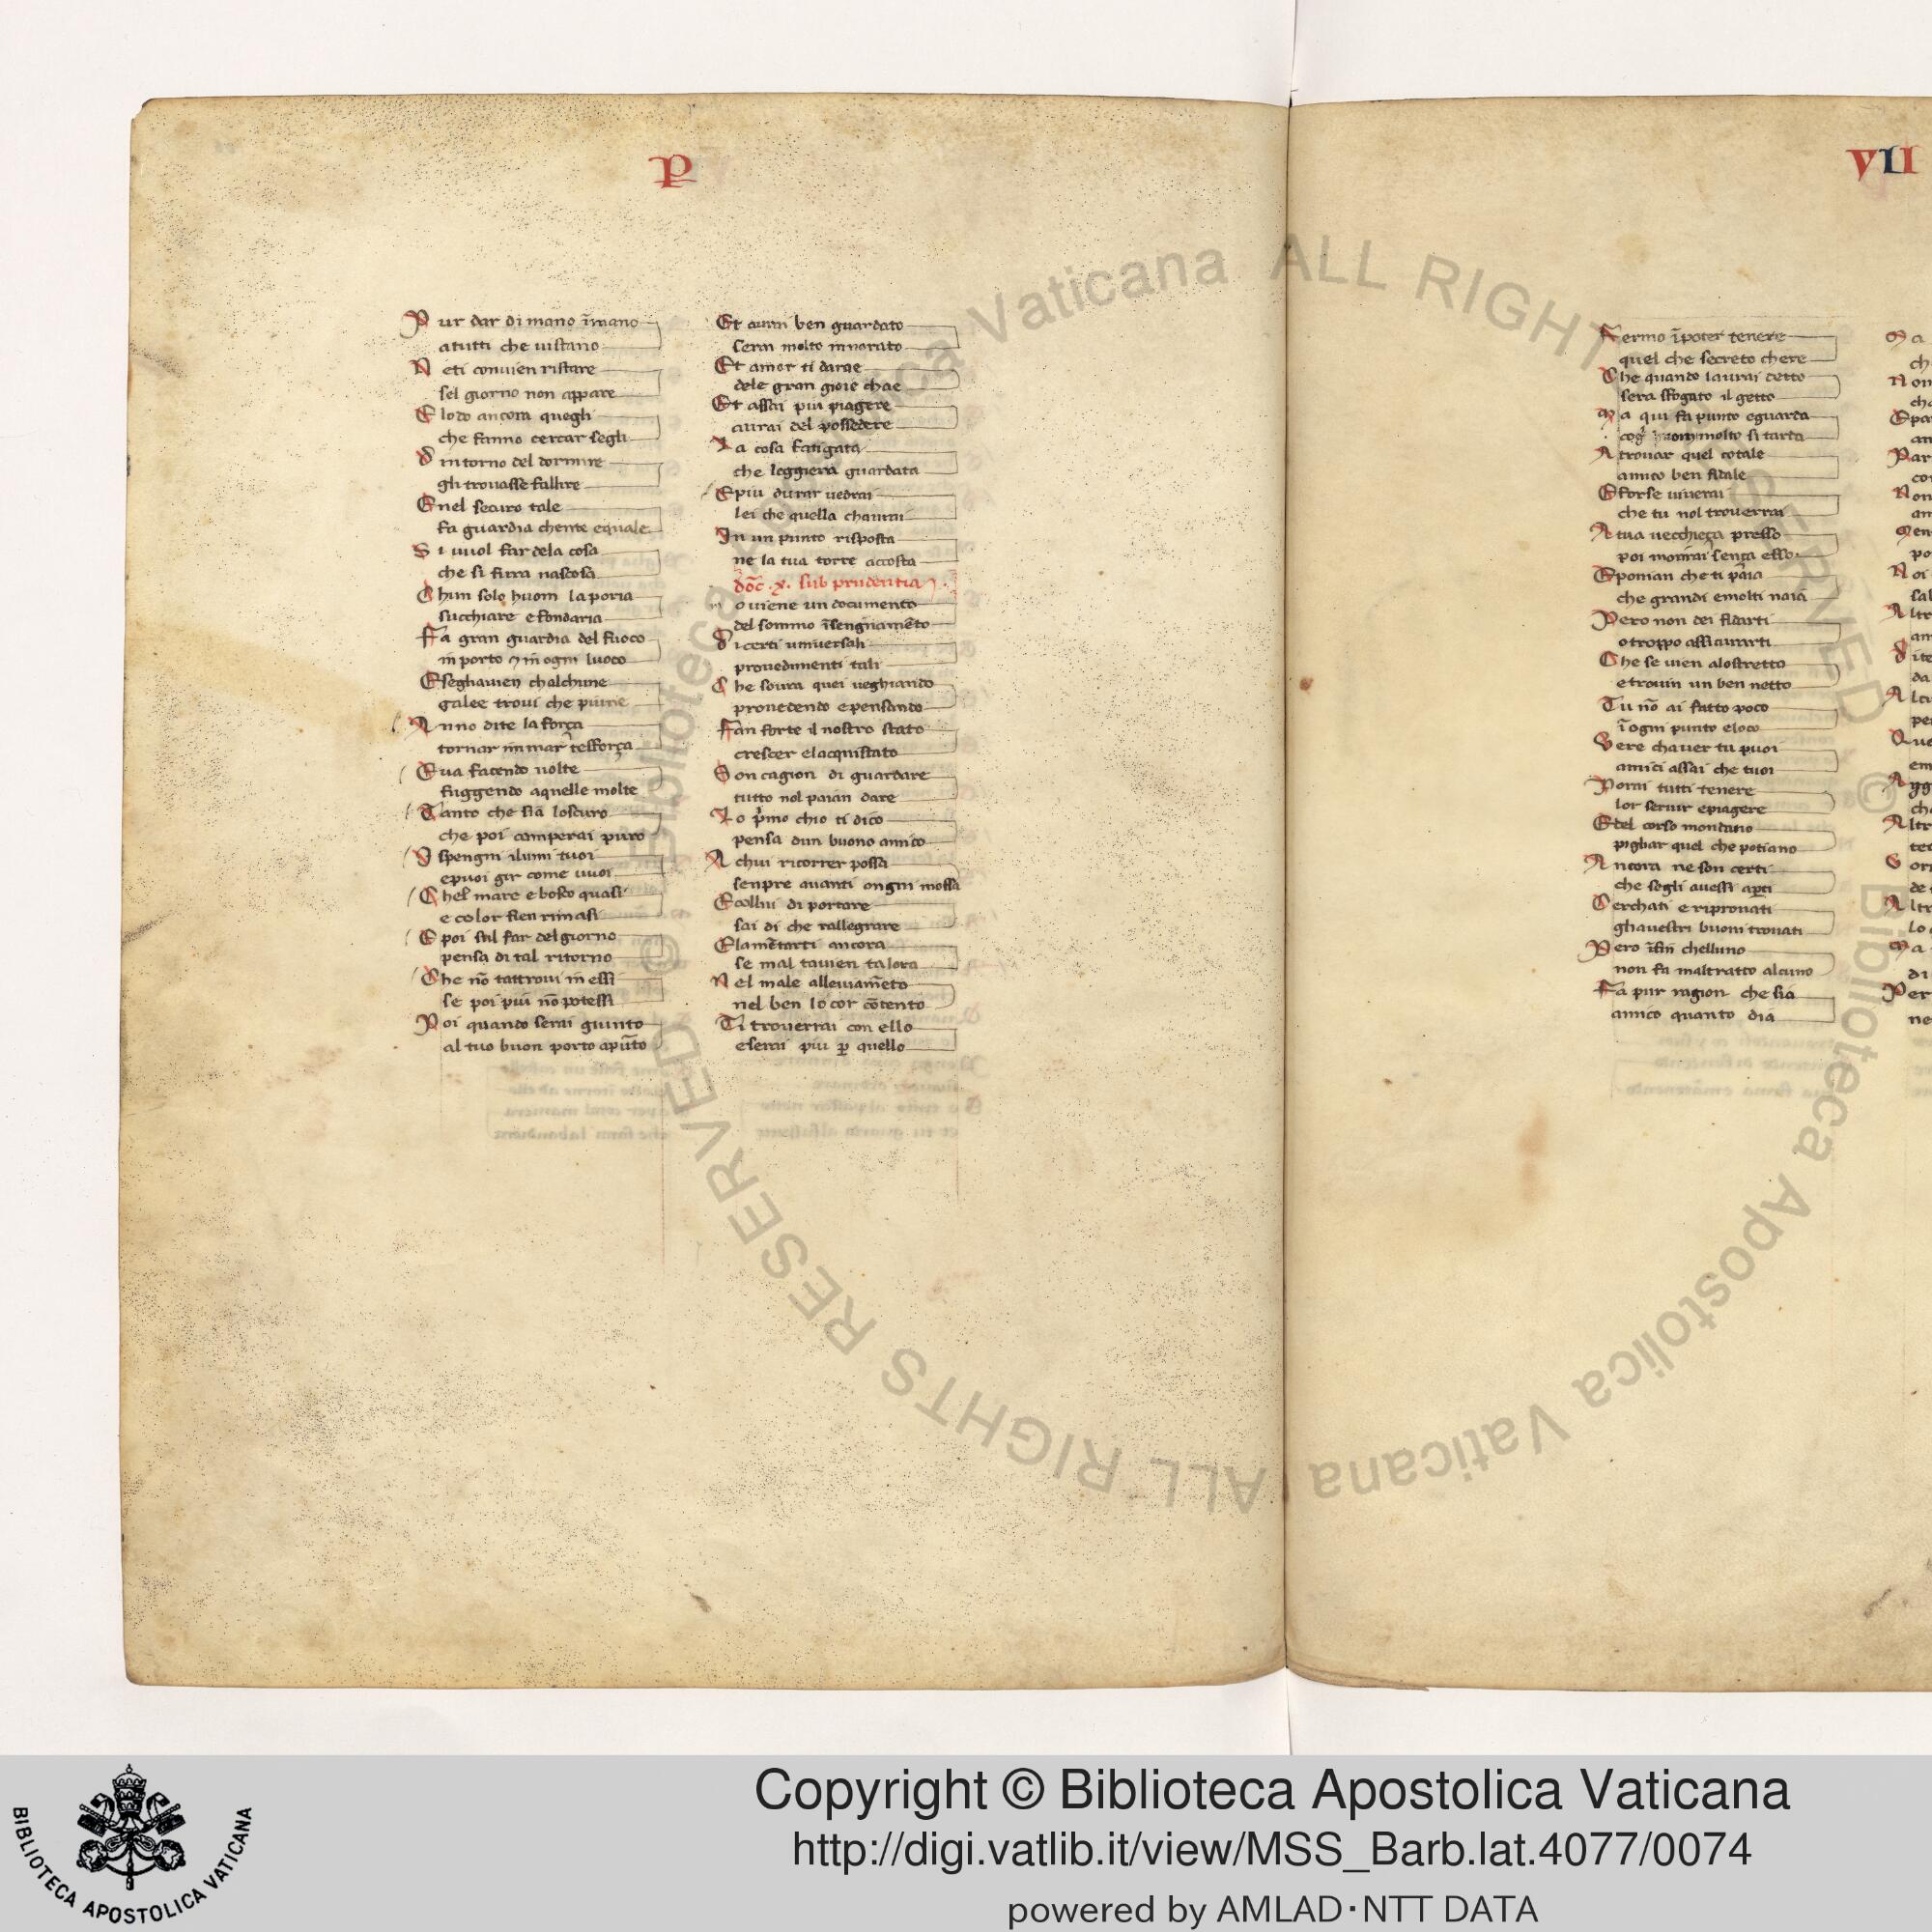 P
Pur dar di mano ĩmano
atutti che uistano
Neti conuien ristare
sel giorno non appare
Elodo ancora quegli
che fanno cercar segli
Dintorno del dormire
gli trouasse fallire
Enel securo tale
fa guardia chente equale
Si uuol far dela cosa
che si furra nascosa
Chun solo huom laporia
succhiare efondaria
Fa gran guardia del fuoco
in porto ⁊ in ogni luoco
Eseghauien chalchune
galee troui che piune
Anno dite la força
tornar
Eua facendo uolte
fuggendo aquelle molte
Tanto che sia loscuro
che poi camperai puro
Ispengni ilumi tuoi
epuoi gir come uuoi
Chel mare e bosco quasi
e color sien rimasi
E poi sul far del giorno
pensa di tal ritorno
Che nõ tattroui in essi
se poi piui nõ potessi
Poi quando serai giunto
al tuo buon porto apũto
Et aurai ben guardato
serai molto innorato
Et amor ti darae
dele gran gioie chae
Et assai piu piagere
aurai del possedere
La cosa fatigata
che leggiera guardata
Epiu durar uedrai
lei che quella chaurai
In un punto risposta
ne la tua torre accosta
doc̃ .x. sub prudentia
ouiene un documento
del sommo ĩsengnamẽto
Dicerti uniuersali
prouedimenti tali
Che soura quei ueghiando
prouedendo epensando
Fan forte il nostro stato
crescer elacquistato
Son cagion di guardare
tutto nol paian dare
Lo p̃mo chio ti dico
pensa dun buono amico
Achui ricorrer possa
senpre auanti ongni mossa
Ecollui di portare
sai di che rallegrare
Elamẽtarti ancora
se mal tauien talora
Nel male alleuiam̃eto
nel ben lo cor cõtento
Ti trouerrai con ello
eserai piu ꝑ quello
VII
Fermo ĩpoter tenere
quel che secreto chere
Che quando laurai detto
sera sfogato il getto
Ma qui fa punto eguarda
molto si tarda
Atrouar quel cotale
amico ben fidale
Eforse uiuerai
che tu nol trouerrai
Atua uecchieça presso
poi morrai sença esso
Epognan che ti
che grandi emolti naia
Pero non dei fidarti
otroppo assicurarti
Che se uien alostretto
etroui un ben netto
Tu nõ ai fatto poco
ĩogni punto eloco
Vere chauer tu puoi
amici assai che tuoi
Porai tutti tenere
lor seruir epiagere
Edel corso mondano
pigliar quel che potiano
Ancora ne son certi
che segli auessi apti
Cerchati e riprouati
ghauestri buoni trouati
Pero chelluno
non fa maltratto alcuno
Fa pur ragion che sia
amico quanto dia
Copyright © Biblioteca Apostolica Vaticana
http://digi.vatlib.it/view/MSS_Barb.lat.4077/0074
powered by AMLAD·NTT DATA
BIBLIOTECA APOSTOLICA VATICANA
© Biblioteca Apostolica Vaticana ALL RIGHTS RESERVED © Biblioteca Apostolica Vaticana ALL RIGHTS RESERVED